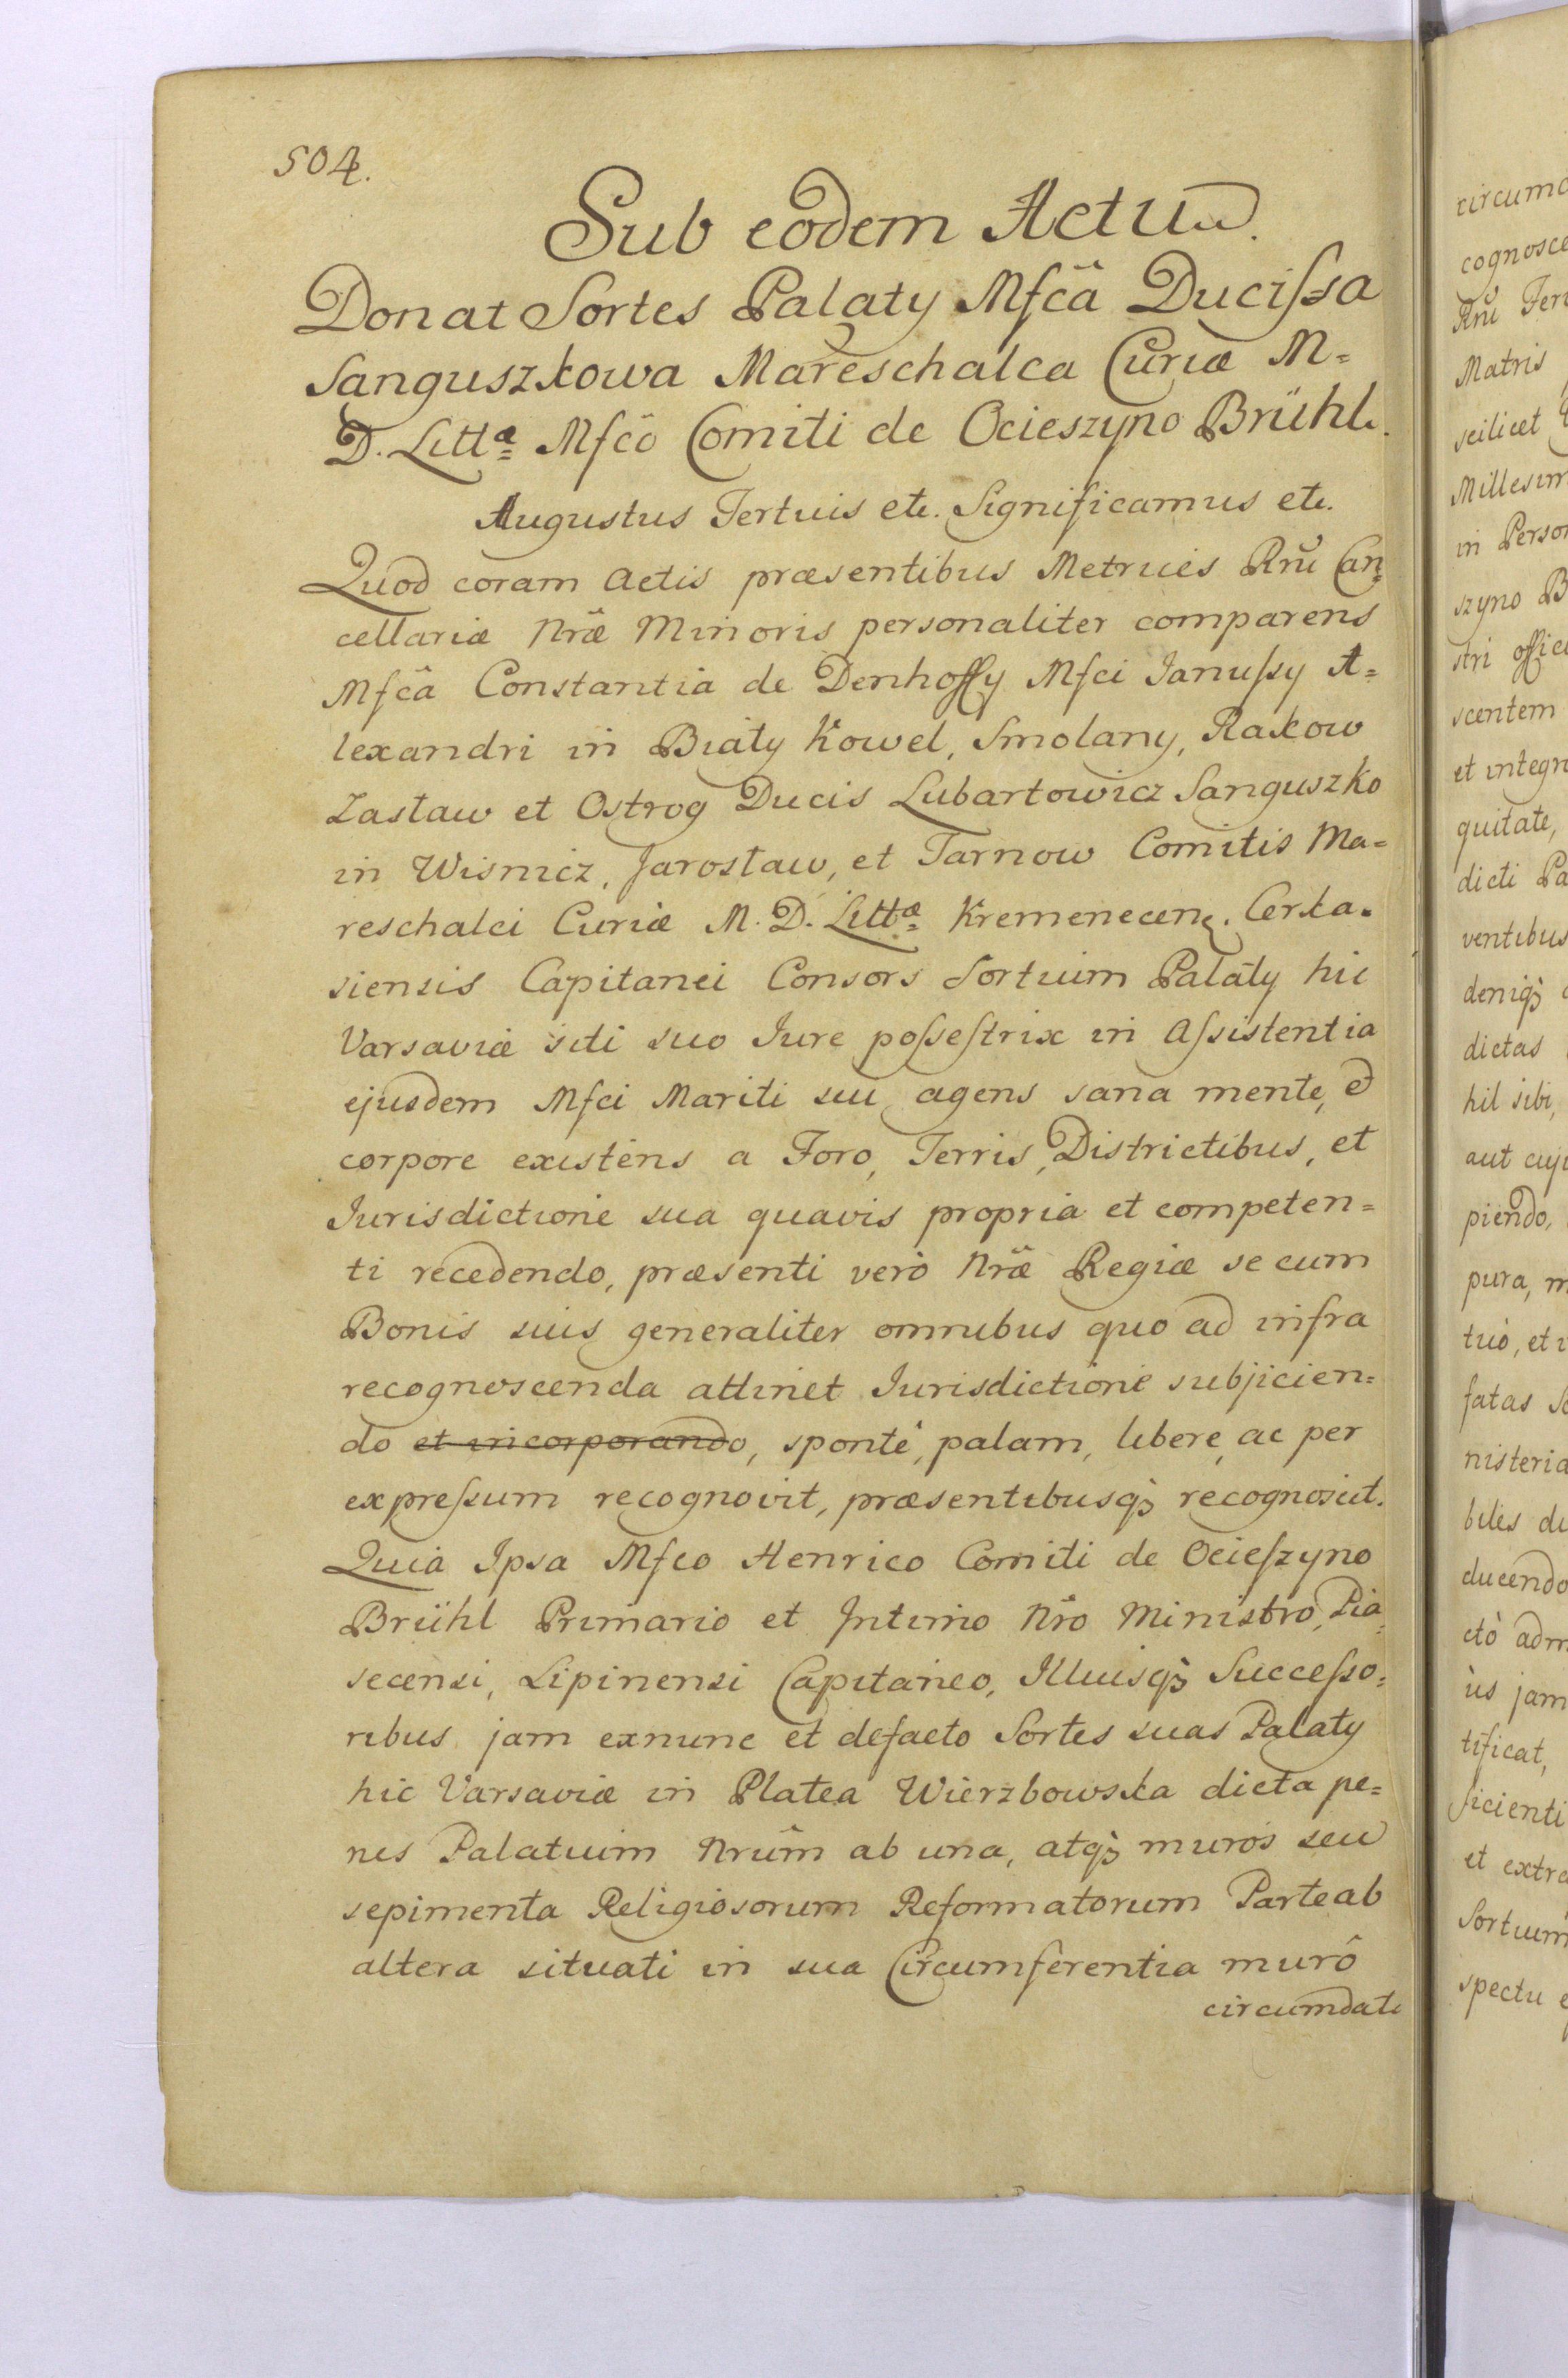 504.
Sub eodem Actu.
Donat Sortes Palaty Mfcâ Ducissa
Sanguszkowa Mareschalca Curiæ M=
D. Littæ Mfcô Comiti de Ocieszyno Brühl.
Augustus Tertius etc. Significamus etc.
Quod coram Actis præsentibus Metrices Rnĩ Can=
cellariæ Nræ Minoris personaliter comparens
Mfcâ Constantia de Denhoffy Mfci Janussy A=
lexandri in Biały Kowel, Smolany, Rakow
Zasław et Ostrog Ducis Lubartowicz Sanguszko
in Wisnicz, Jarosław, et Tarnow Comitis Ma=
reschalci Curiæ M. D. Littæ Kremenecen. Cerka=
siensis Capitanei Consors Sortium Palaty hic
Varsaviæ siti suo Jure possestrix in Assistentia
ejusdem Mfci Mariti sui agens sana mente, et
corpore existens a Foro, Terris, Districtibus, et
Jurisdictione sua quavis propria et competen=
ti recedendo, præsenti verò Nræ Regiæ se cum
Bonis suis generaliter omnibus quo ad infra
recognoscenda attinet Jurisdictione subjicien=
do et incorporando, spontè, palam, libere, ac per
expressum recognovit, præsentibusq; recognoscit.
Quia Ipsa Mfco Henrico Comiti de Ocieszyno
Brühl Primario et Intimo Nrô Ministro, Pia=
secensi, Lipinensi Capitaneo, Illiusq; Successo=
ribus jam exnunc et defacto Sortes suas Palaty
hic Varsaviæ in Platea Wierzbowska dicta pe=
nes Palatium Nrûm ab una, atq; muros seu
sepimenta Religiosorum Reformatorum Parte ab
altera situati in sua Circumferentia murô
circumdati
circumd
cognosce
Rnĩ Ter
Matris
scilicet
Millesim
in Person
szyno B
stri offici
scentem
et integr
quitate,
dicti Pa
ventibus
deniq;
dictas
hil sibi,
aut cuj
piendo,
pura, m
tuò, et i
fatas So
nisteria
biles di
ducendo
ctò adm
ùs jam
tificat,
ficienti
et extra
Sortium
spectu e